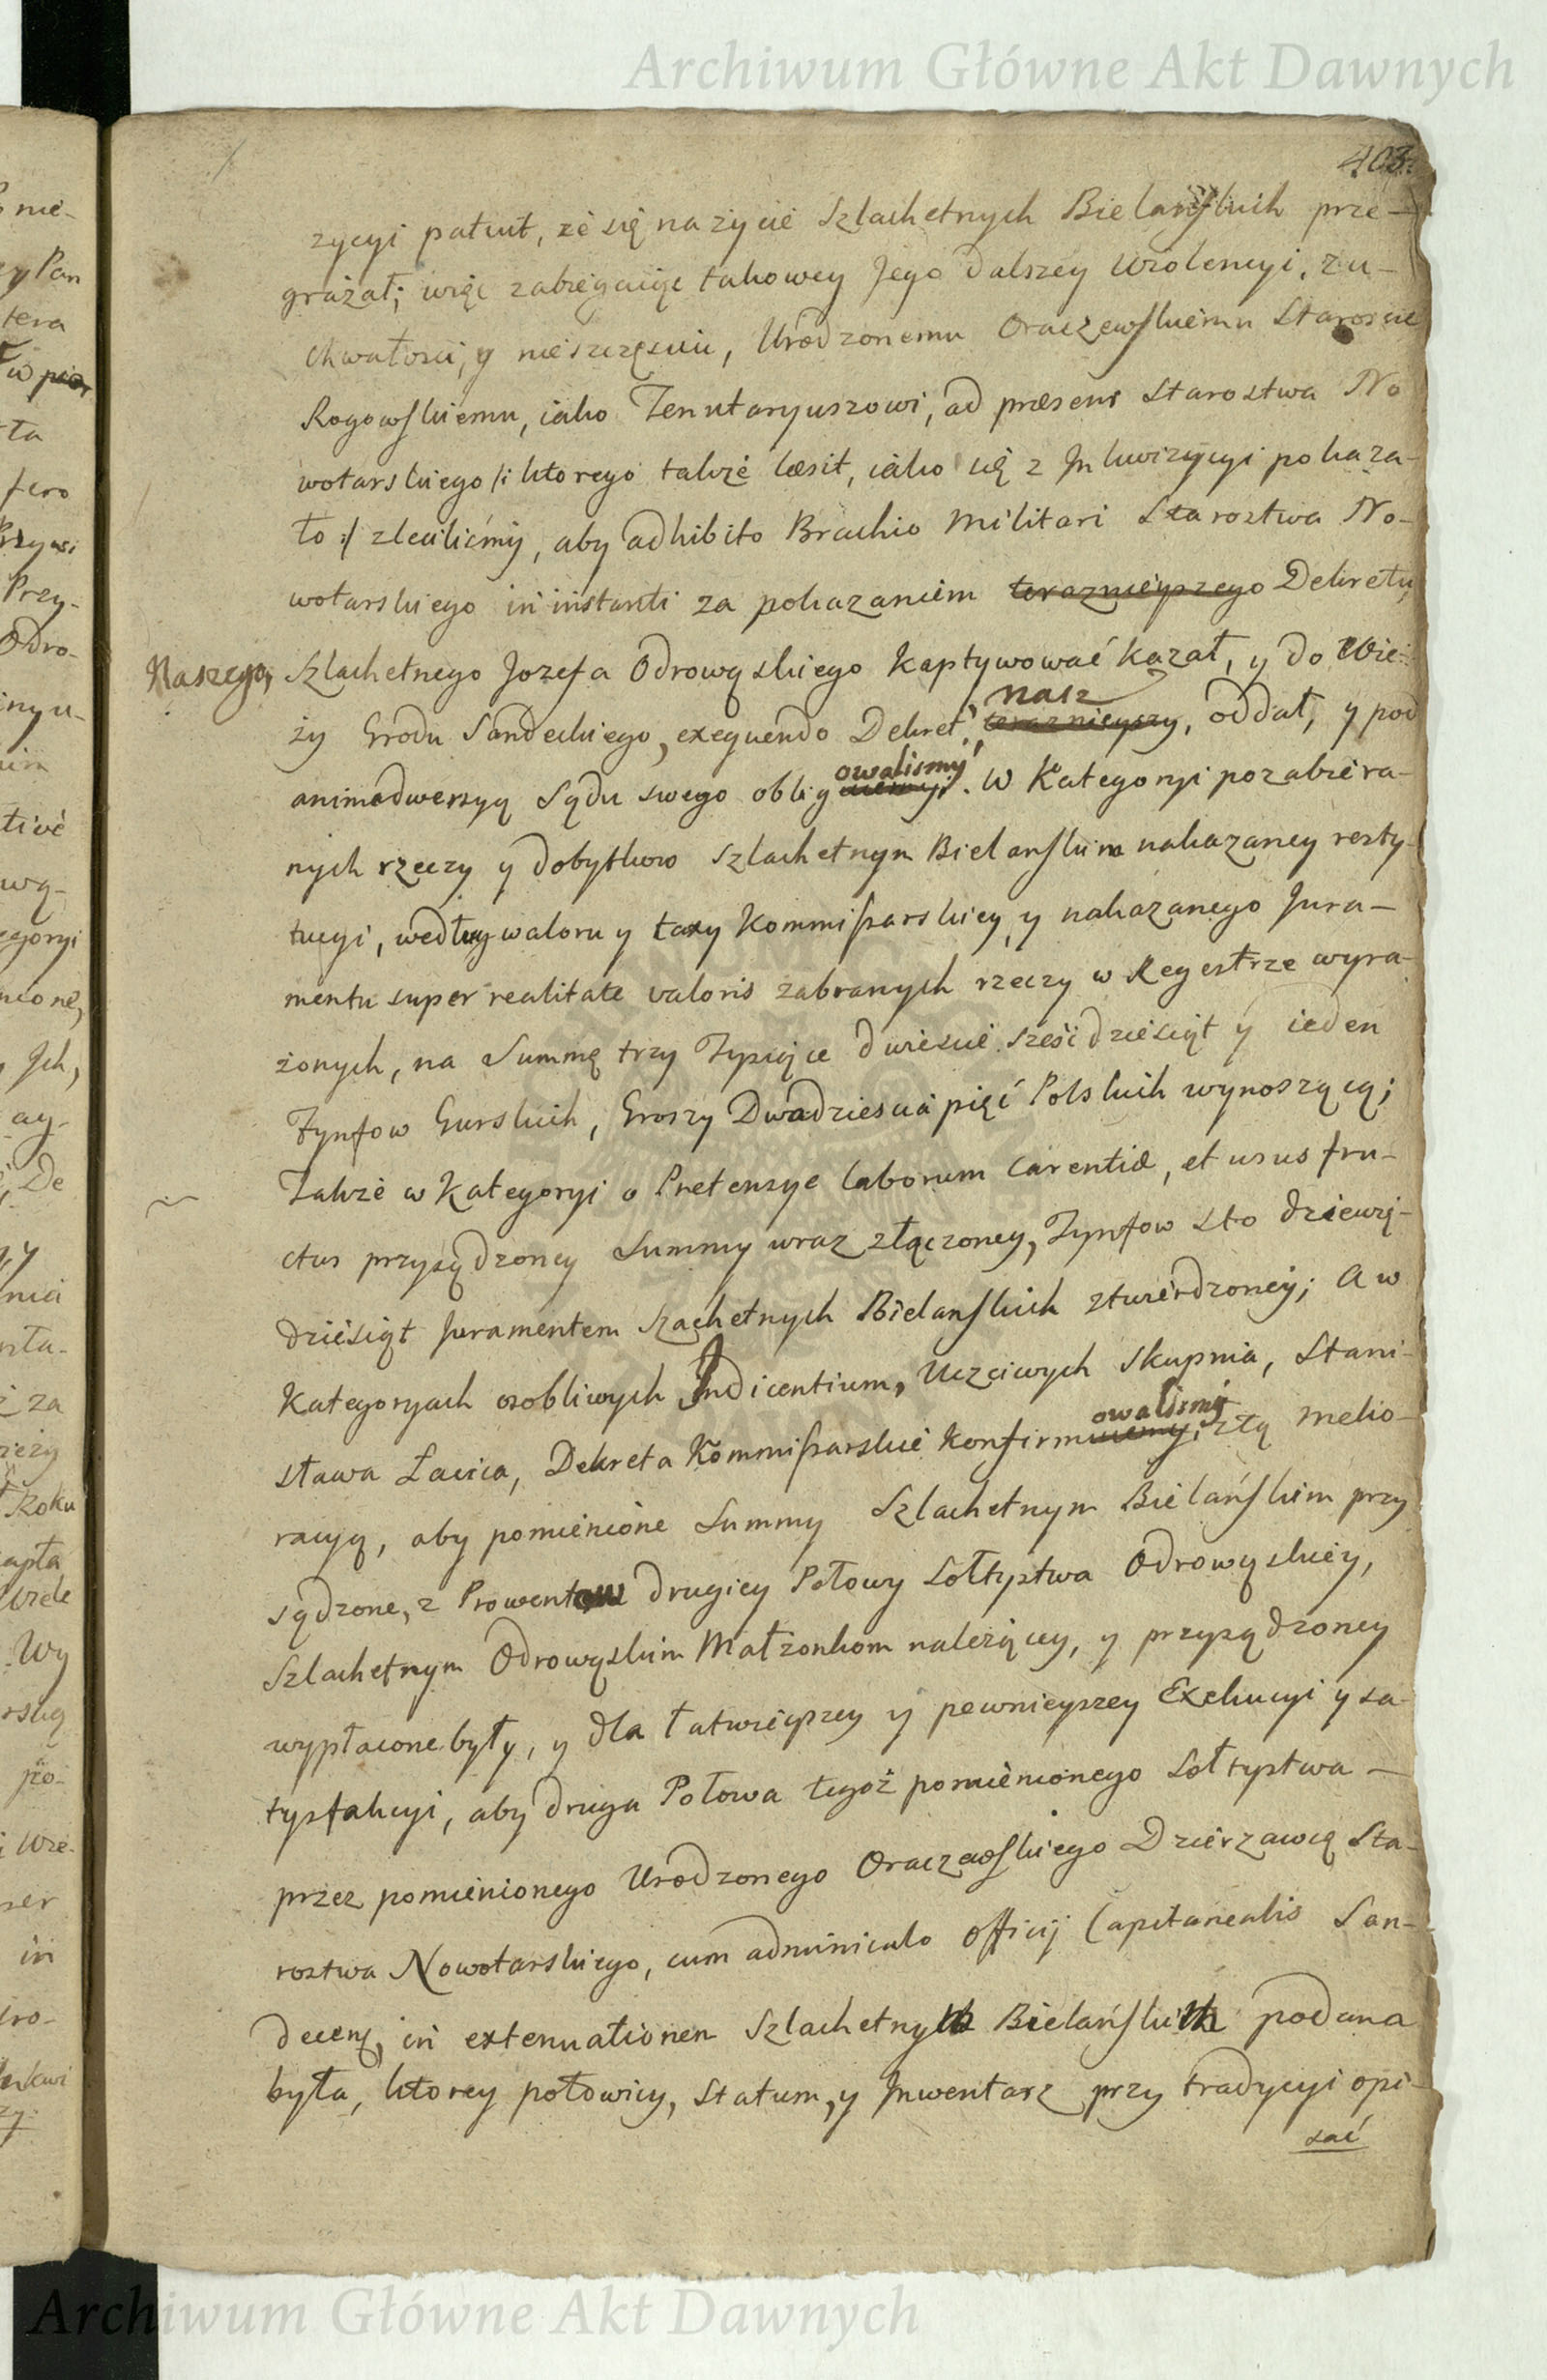 Archiwum Główne Akt Dawnych
403.
zycyi patuit, że się na życie Szlachetnych Bielańskich prze-
grażał; więc zabiegaiąc takowey Jego dalszey wiolencyi, zu-
chwałości, y nieszczęściu, Urodzonemu Oraczewskiemu Staroscie
Rogowskiemu, iako Tenutaryuszowi, ad præsens Starostwa No
wotarskiego /: ktorego także læsit, iako się z Inkwizycyi pokaza-
ło :/ zleciliśmy, aby adhibito Brachio Militari Starostwa No-
wotarskiego in instanti za pokazaniem teraznieyszego Dekretu
Naszego, Szlachetnego Jozefa Odrowąskiego kaptywować kazał, y do Wie-
nasz
ży Grodu Sandeckiego, exequendo Dekret teraznieyszy, oddał, y pod
owalismy
animadwersyą Sądu swego oblig. W Kategoryi pozabiera-
nych rzeczy y dobytkow Szlachetnym Bielanskim nakazaney resty-
tucyi, według waloru y taxy Kommissarskiey, y nakazanego Jura-
mentu super realitate valoris zabranych rzeczy w Regestrze wyra-
żonych, na Summę trzy Tysiące dwiescie sześćdziesiąt y ieden
Tynfow Gurskich, Groszy Dwadziescia pięć Polskich wynoszącą;
Także w Kategoryi o Pretensye laborum carentiæ, et usus fru-
ctus przysądzoney Summy wraz złączoney, Tynfow sto dziewię-
dziesiąt Juramentem Szachetnych Bielanskich ztwierdzoney; A w
Kategoryach osobliwych Indicentium, Uczciwych Skupnia, Stani-
owalismy
sława Łacica, Dekreta Kommissarskie konfirm, ztą melio-
racyą, aby pomienione Summy Szlachetnym Bielańskim przy
sądzone, z Prowentow drugiey Połowy Sołtystwa Odrowąskiey,
Szlachetnym Odrowąskim Małżonkom należącey, y przysądzoney
wypłacone były, y dla łatwieyszey y pewnieyszey Exekucyi y sa-
tysfakcyi, aby druga Połowa tegoż pomienionego Sołtystwa —
przez pomienionego Urodzonego Oraczewskiego Dzierzawcę Sta-
rostwa Nowotarskiego, cum adminiculo Officij Capitanealis San-
decen, in extenuationem Szlachetnych Bielańskich podana
była, ktorey połowicy, Statum, y Inwentarz przy tradycyi opi-
sać
Archiwum Główne Akt Dawnych